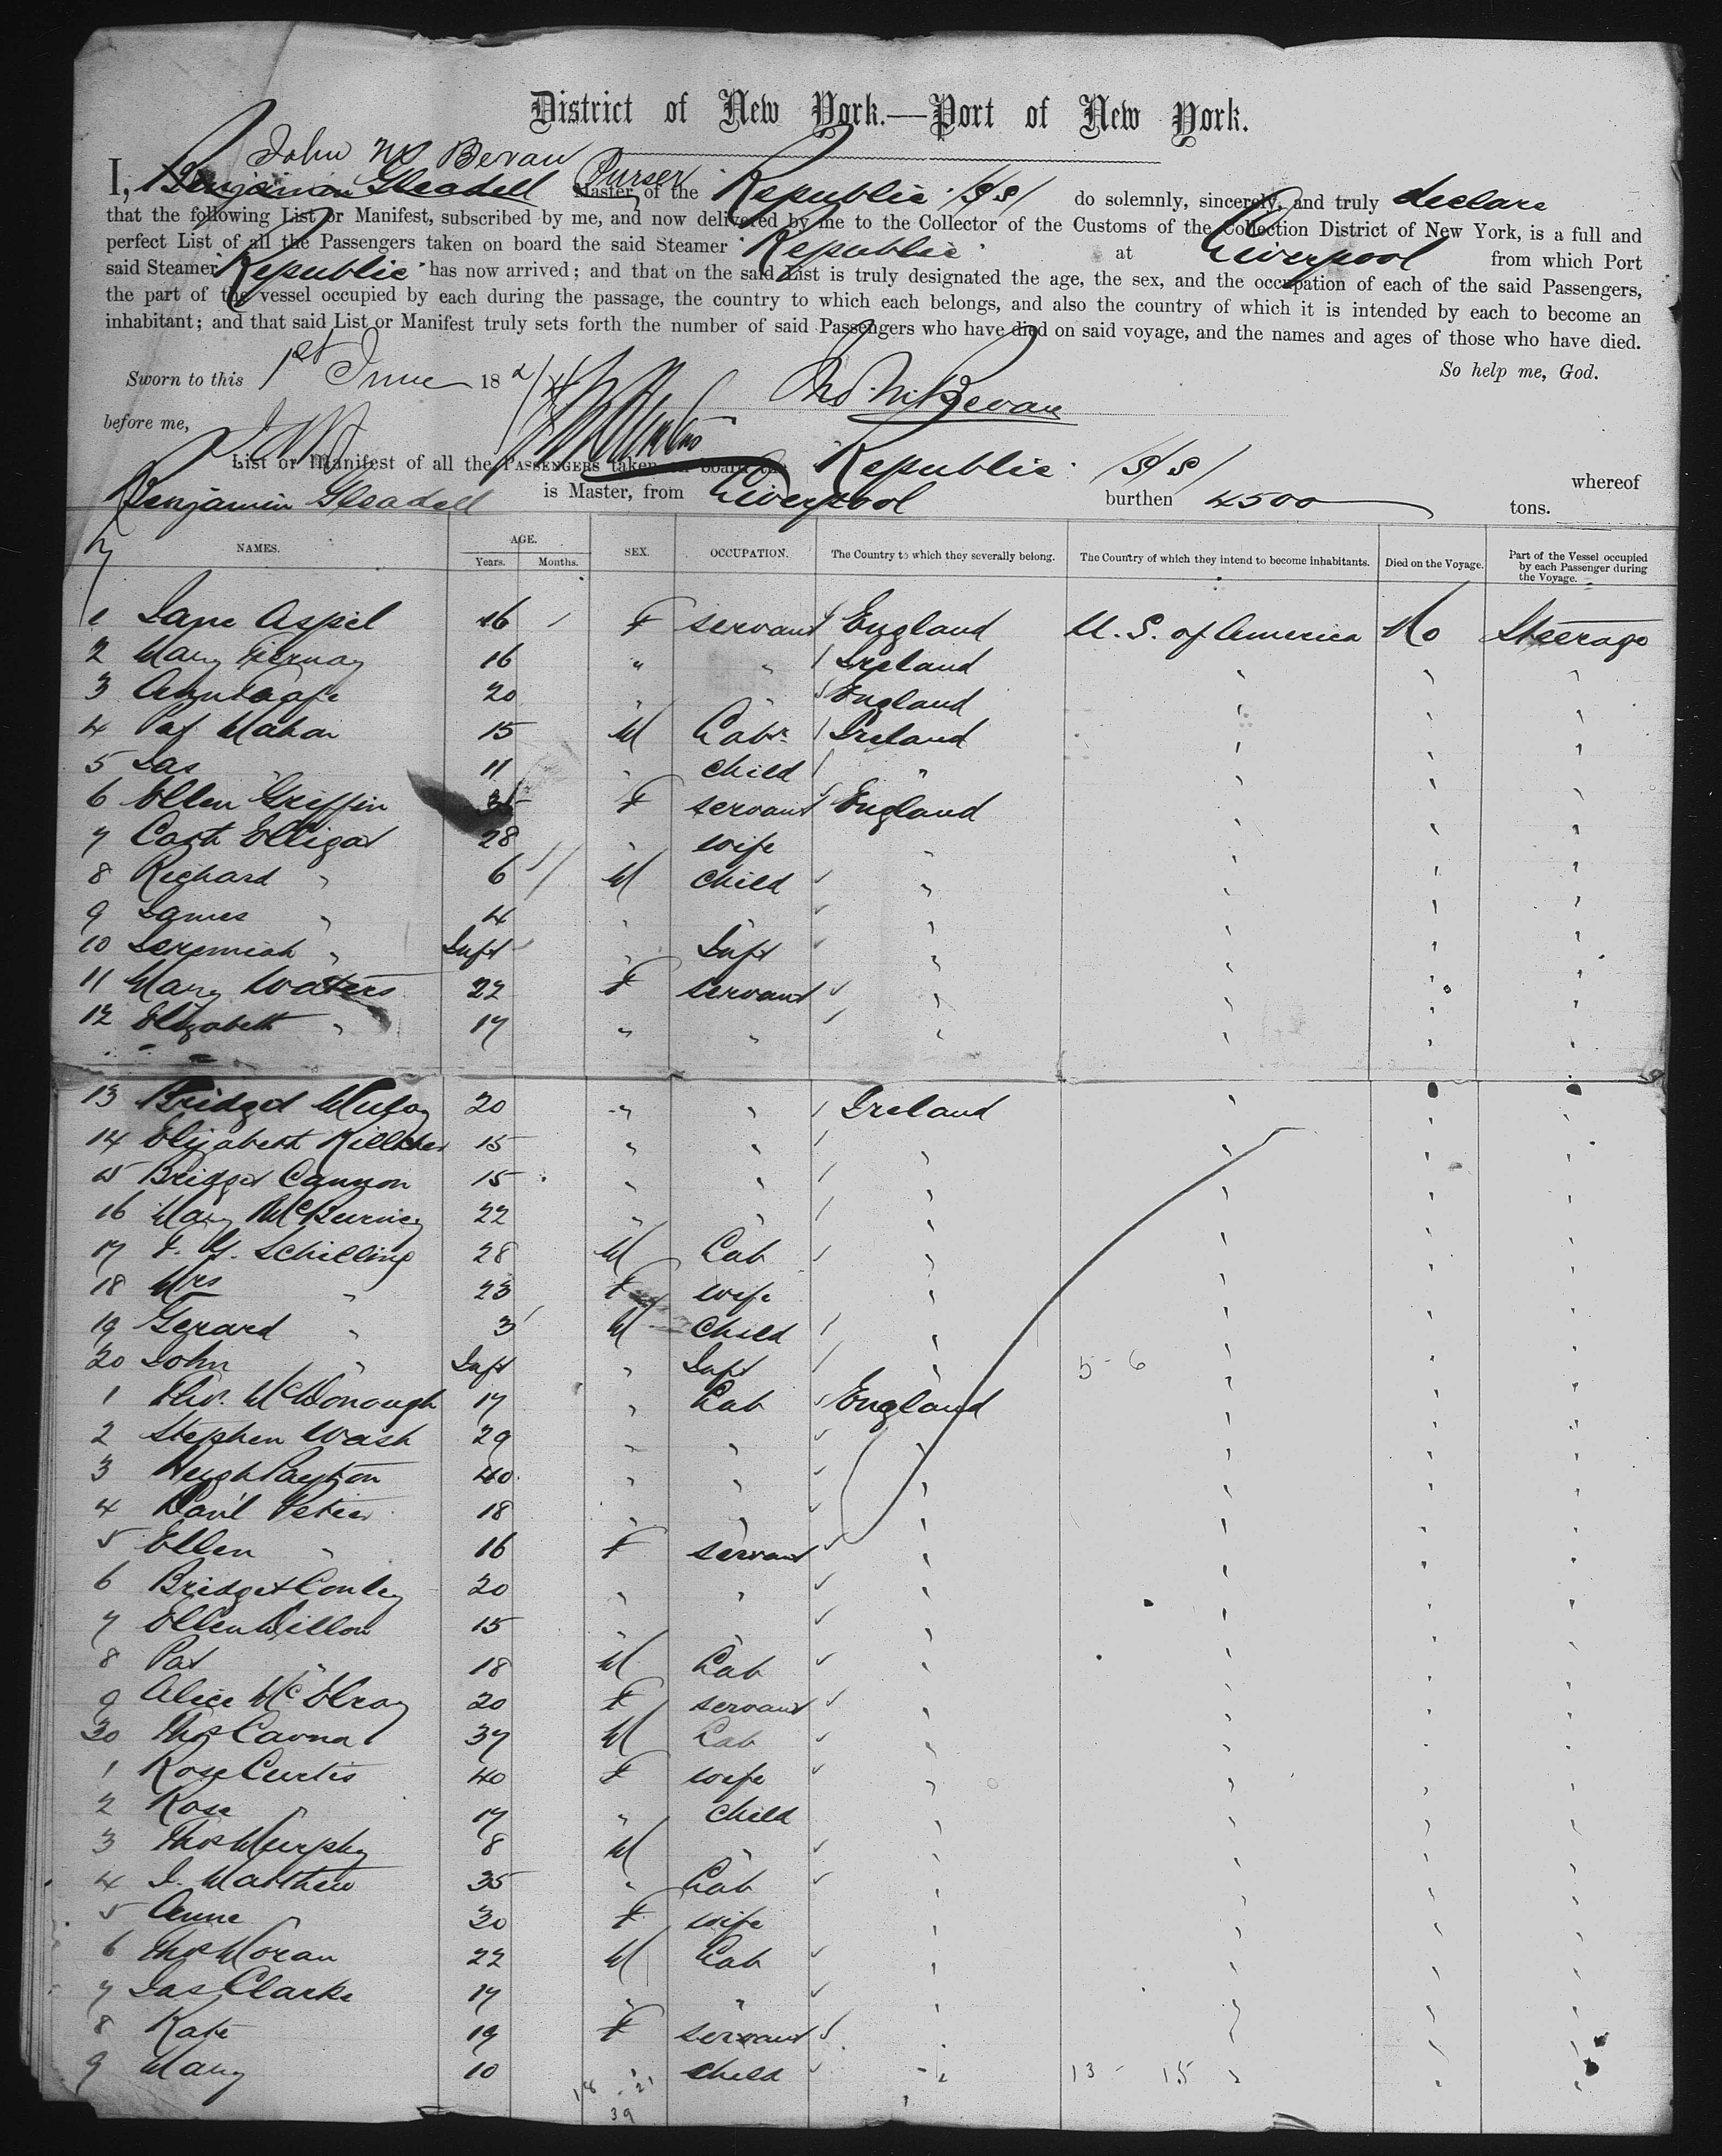 District of New York.—Port of New York.
John Wm Bevan
I, Benjamin Gleadell Master Purser of the "Republic" S/S/ do solemnly, sincerely, and truly declare
that the following List or Manifest, subscribed by me, and now delivered by me to the Collector of the Customs of the Collection District of New York, is a full and
perfect List of all the Passengers taken on board the said Steamer "Republic" at Liverpool from which Port
said Steamer "Republic" has now arrived; and that on the said List is truly designated the age, the sex, and the occupation of each of the said Passengers,
the part of the vessel occupied by each during the passage, the country to which each belongs, and also the country of which it is intended by each to become an
inhabitant; and that said List or Manifest truly sets forth the number of said Passengers who have died on said voyage, and the names and ages of those who have died.
So help me, God.
Sworn to this 1st June 188
before me,
Bevan
List or Manifest of all the PASSENGERS taken on board the Republic S/S/ whereof
Benjamin Gleadell is Master, from Liverpool burthen 4500 tons.
NAMES. AGE. Years. Months. SEX. OCCUPATION. The Country to which they severally belong. The Country of which they intend to become inhabitants. Died on the Voyage. Part of the Vessel occupied by each Passenger during the Voyage.
1 Jane Aspel 16 F servant England U. S. of America No Steerage
2 Mary 16 " " Ireland " " "
3 20 " " England " " "
4 Pat Mahon 15 M Labr Ireland " " "
5 Jas " 11 " child " " " "
6 Ellen Griffin F servant England " " "
7 Cath 28 " wife " " " "
8 Richard " 6 M child " " " "
9 James " 4 " " " " " "
10 Jeremiah " Inft " Inft " " " "
11 Mary Waters 22 F servant " " " "
12 Elizabeth " 17 " " " " " "
13 Bridget 20 " " Ireland " " "
14 Elizabeth 15 " " " " " "
15 Bridget Cannon 15 " " " " " "
16 Mary McBurney 22 " " " " " "
17 Schilling 28 M Lab " " " "
18 Mrs " 23 F wife " " " "
19 Gerard " 3 M child " " " "
20 John " Inft " Inft " 5-6 " " "
1 Thos. McDonough 17 " Lab England " " "
2 Stephen Wash 29 " " " " " "
3 Hugh Payton 40 " " " " " "
4 Danl Peters 18 " " " " " "
5 Ellen " 16 F servant " " " "
6 Bridget Conley 20 " " " " " "
7 Ellen Dillon 15 " " " " " "
8 Pat " 18 M Lab " " " "
9 Alice McElroy 20 F servant " " " "
30 Thos Cavna 37 M Lab " " " "
1 Rose Curtis 40 F wife " " " "
2 Rose " 17 " child " " " "
3 Thos Murphy 8 M " " " " "
4 J. Matthew 35 " Lab " " " "
5 Anne " 30 F wife " " " "
6 Thos Moran 22 M Lab " " " "
7 Jas Clarke 17 " " " " " "
8 Kate 19 F servant " " " "
9 Mary 10 " child " 13 - 15 " " "
18 - 21
39